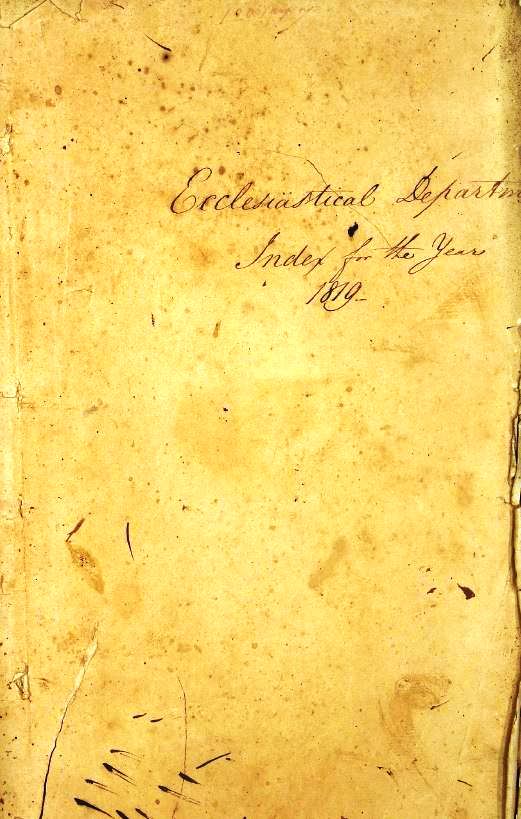 Ecclesiastical Departm
Index for the Year
1819